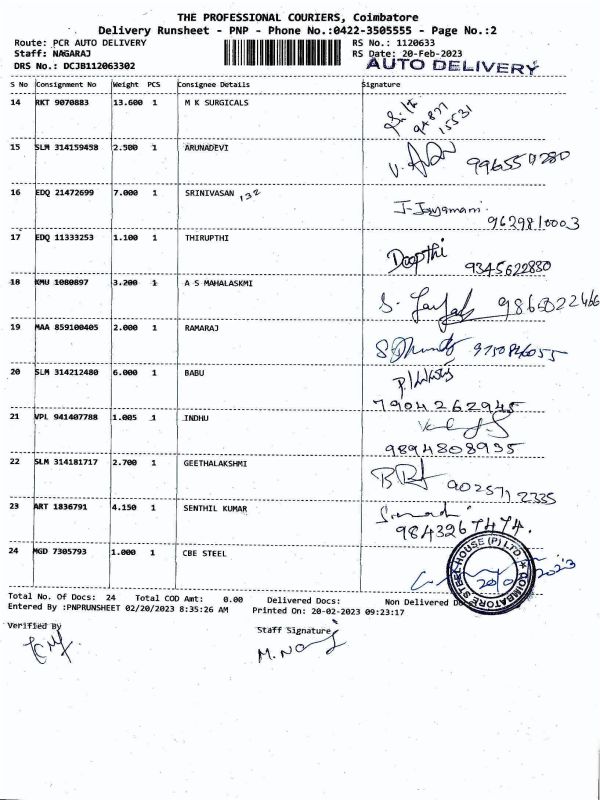 THE PROFESSIONAL COURIERS, Coimbatore
Delivery Runsheet - PNP - Phone No.:0422-3505555 - Page No.:2
Route: PCR AUTO DELIVERY RS No.: 1120633
Staff: NAGARAJ RS Date: 20-Feb-2023
DRS No.: DCJB112063302 AUTO DELIVERY
S No Consignment No Weight PCS Consignee Details Signature
14 RKT 9070883 13.600 1 M K SURGICALS
94877
15531
15 SLM 314159458 2.500 1 ARUNADEVI
16 EDQ 21472699 7.000 1 SRINIVASAN 132
9629810003
17 EDQ 11333253 1.100 1 THIRUPTHI
Deepthi 9345622830
18 KMU 1080897 3.200 1 A S MAHALASKMI
19 MAA 859100405 2.000 1 RAMARAJ
20 SLM 314212480 6.000 1 BABU
7904262945
21 VPL 941407788 1.005 1 INDHU
9894808935
22 SLM 314181717 2.700 1 GEETHALAKSHMI
9025712335
23 ART 1836791 4.150 1 SENTHIL KUMAR
9843267474.
24 MGD 7305793 1.000 1 CBE STEEL
STEEL HOUSE (P) LTD ★ COIMBATORE
Total No. Of Docs: 24 Total COD Amt: 0.00 Delivered Docs: Non Delivered
Entered By :PNPRUNSHEET 02/20/2023 8:35:26 AM Printed On: 20-02-2023 09:23:17
Verified By Staff Signature